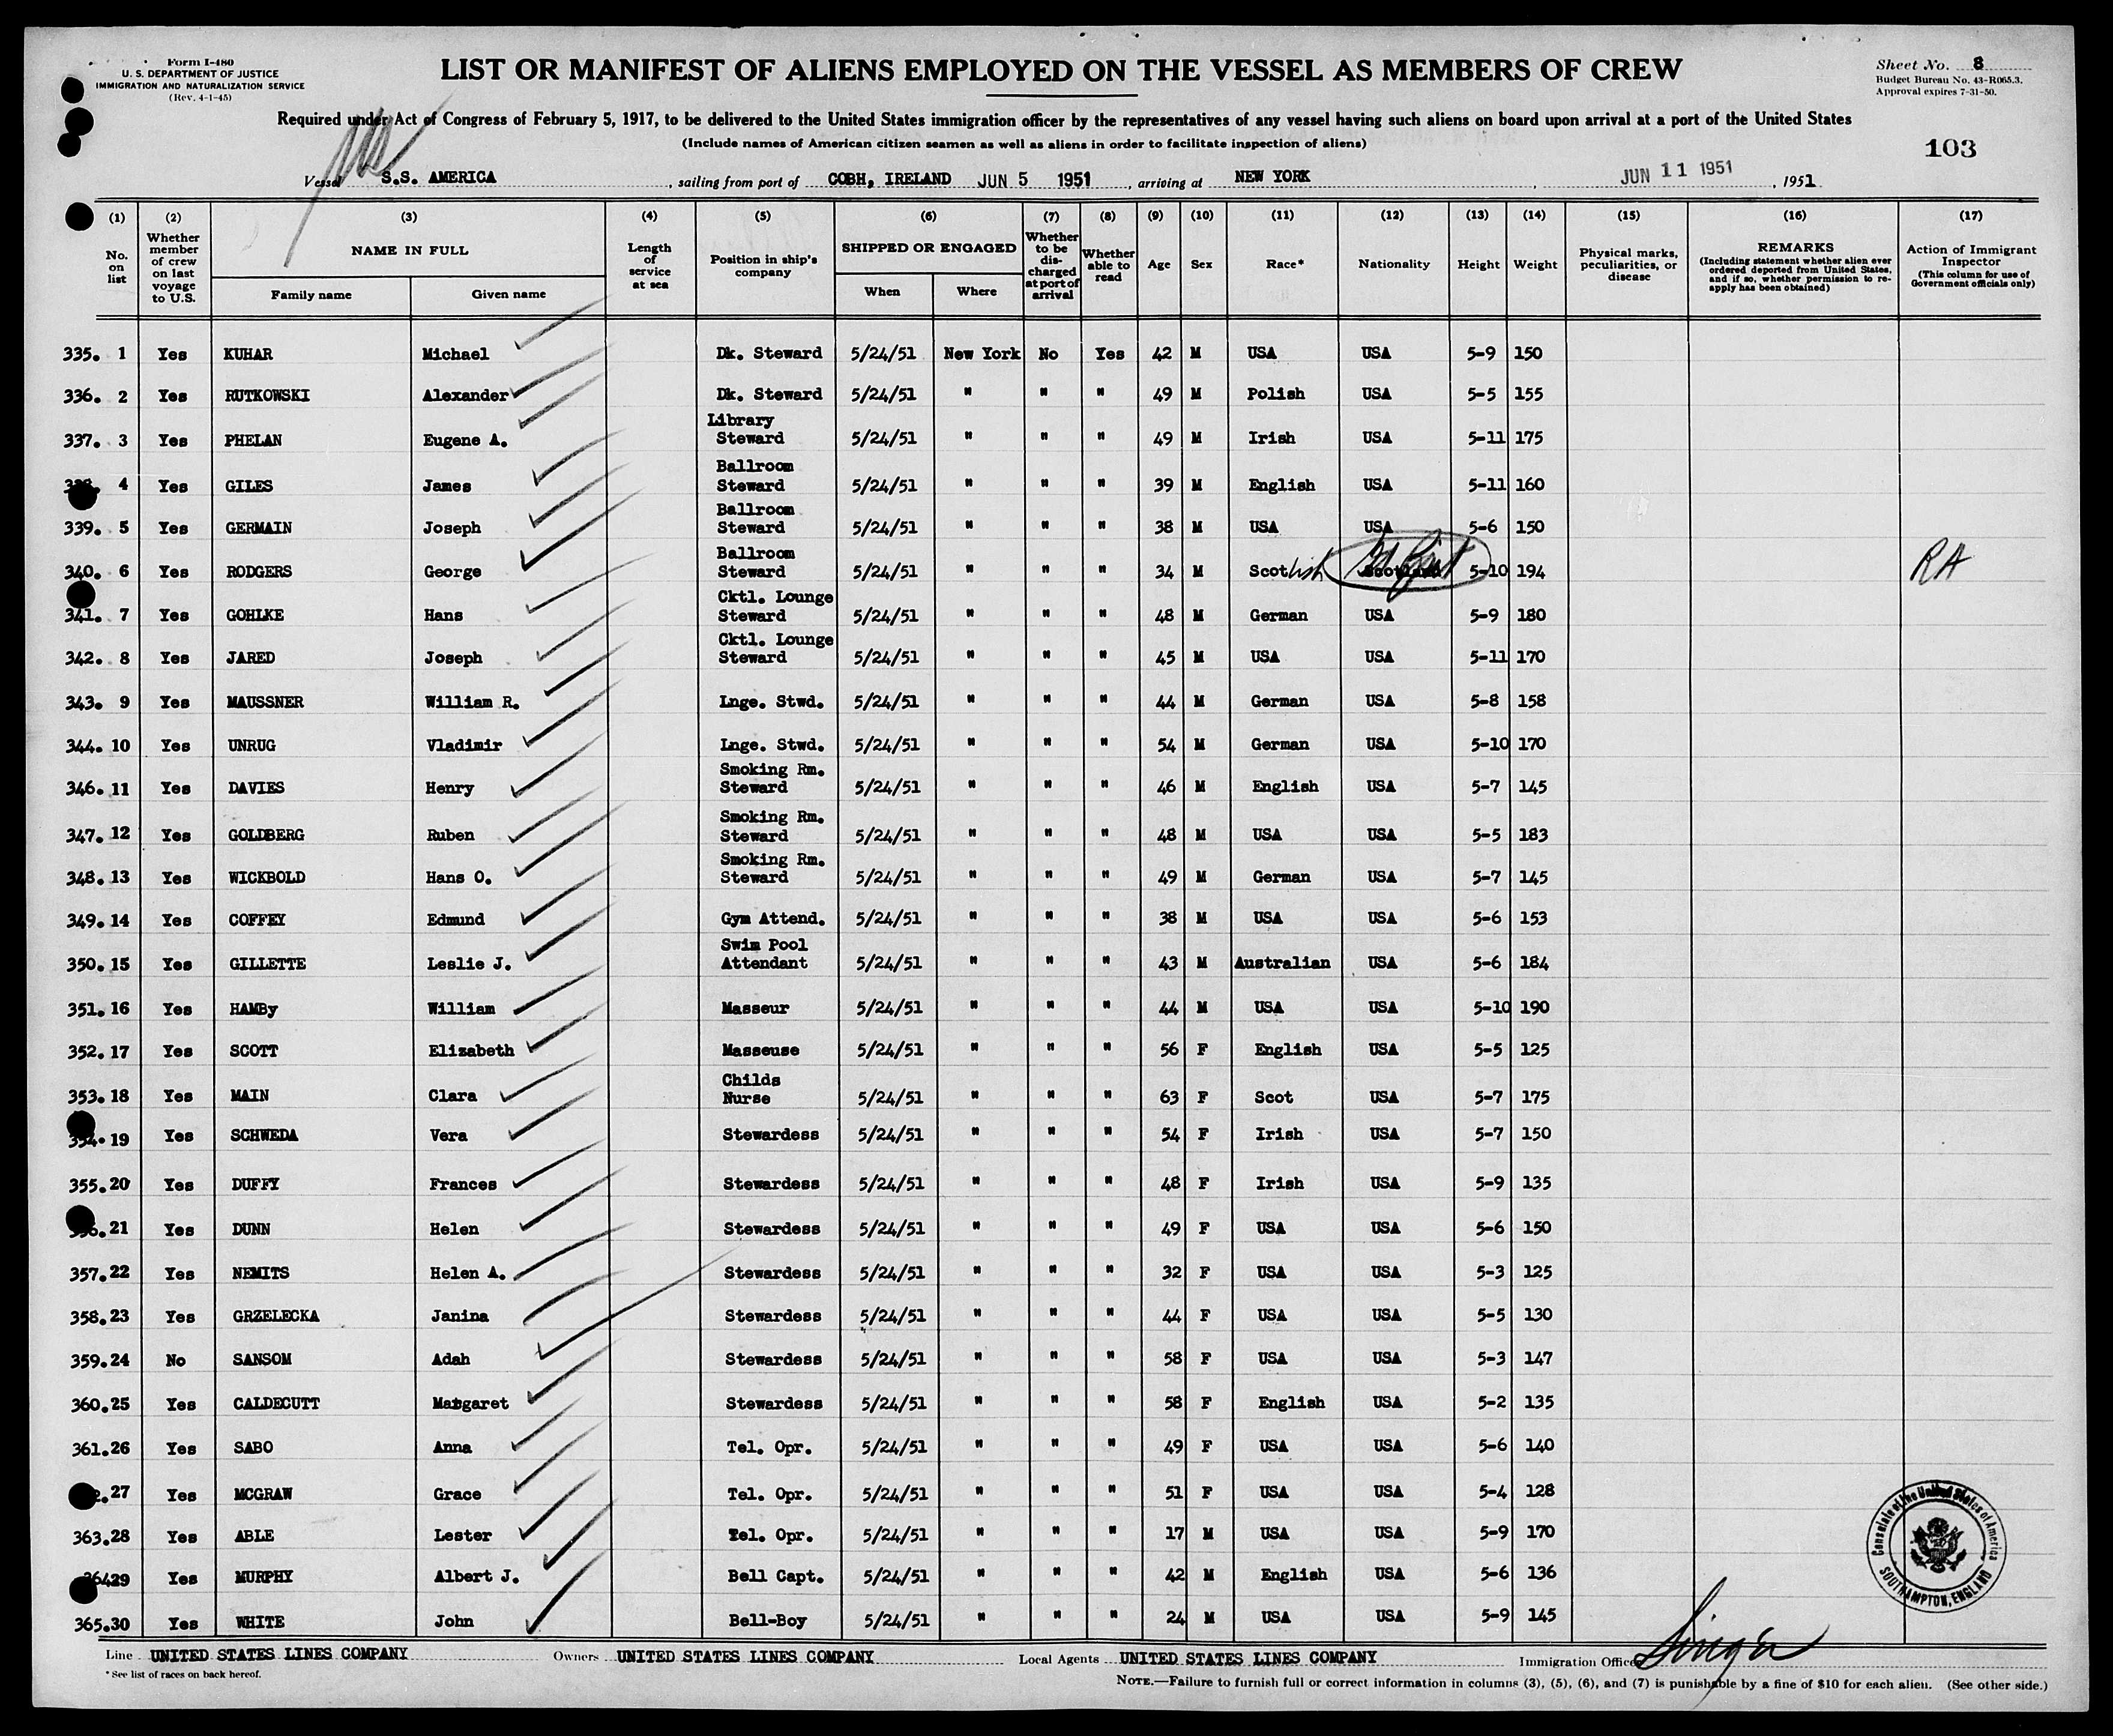 Form I-480
U. S. DEPARTMENT OF JUSTICE
IMMIGRATION AND NATURALIZATION SERVICE
(Rev. 4-1-45)
LIST OR MANIFEST OF ALIENS EMPLOYED ON THE VESSEL AS MEMBERS OF CREW
Sheet No. 8
Budget Bureau No. 43-R065.3.
Approval expires 7-31-50.
Required under Act of Congress of February 5, 1917, to be delivered to the United States immigration officer by the representatives of any vessel having such aliens on board upon arrival at a port of the United States
(Include names of American citizen seamen as well as aliens in order to facilitate inspection of aliens)
103
Vessel S.S. AMERICA, sailing from port of COBH, IRELAND JUN 5 1951, arriving at NEW YORK, JUN 11 1951, 1951
(1) (2) (3) (4) (5) (6) (7) (8) (9) (10) (11) (12) (13) (14) (15) (16) (17)
No. on list
Whether member of crew on last voyage to U.S.
NAME IN FULL
Family name
Given name
Length of service at sea
Position in ship's company
SHIPPED OR ENGAGED
When
Where
Whether to be discharged at port of arrival
Whether able to read
Age
Sex
Race*
Nationality
Height
Weight
Physical marks, peculiarities, or disease
REMARKS
(Including statement whether alien ever ordered deported from United States, and if so, whether permission to re-apply has been obtained)
Action of Immigrant Inspector
(This column for use of Government officials only)
335. 1 Yes KUHAR Michael Dk. Steward 5/24/51 New York No Yes 42 M USA USA 5-9 150
336. 2 Yes RUTKOWSKI Alexander Dk. Steward 5/24/51 " " " 49 M Polish USA 5-5 155
337. 3 Yes PHELAN Eugene A. Library Steward 5/24/51 " " " 49 M Irish USA 5-11 175
4 Yes GILES James Ballroom Steward 5/24/51 " " " 39 M English USA 5-11 160
339. 5 Yes GERMAIN Joseph Ballroom Steward 5/24/51 " " " 38 M USA USA 5-6 150
340. 6 Yes RODGERS George Ballroom Steward 5/24/51 " " " 34 M Scottish Scotland 5-10 194 RA
341. 7 Yes GOHLKE Hans Cktl. Lounge Steward 5/24/51 " " " 48 M German USA 5-9 180
342. 8 Yes JARED Joseph Cktl. Lounge Steward 5/24/51 " " " 45 M USA USA 5-11 170
343. 9 Yes MAUSSNER William R. Lnge. Stwd. 5/24/51 " " " 44 M German USA 5-8 158
344. 10 Yes UNRUG Vladimir Lnge. Stwd. 5/24/51 " " " 54 M German USA 5-10 170
346. 11 Yes DAVIES Henry Smoking Rm. Steward 5/24/51 " " " 46 M English USA 5-7 145
347. 12 Yes GOLDBERG Ruben Smoking Rm. Steward 5/24/51 " " " 48 M USA USA 5-5 183
348. 13 Yes WICKBOLD Hans O. Smoking Rm. Steward 5/24/51 " " " 49 M German USA 5-7 145
349. 14 Yes COFFEY Edmund Gym Attend. 5/24/51 " " " 38 M USA USA 5-6 153
350. 15 Yes GILLETTE Leslie J. Swim Pool Attendant 5/24/51 " " " 43 M Australian USA 5-6 184
351. 16 Yes HAMBy William Masseur 5/24/51 " " " 44 M USA USA 5-10 190
352. 17 Yes SCOTT Elizabeth Masseuse 5/24/51 " " " 56 F English USA 5-5 125
353. 18 Yes MAIN Clara Childs Nurse 5/24/51 " " " 63 F Scot USA 5-7 175
354. 19 Yes SCHWEDA Vera Stewardess 5/24/51 " " " 54 F Irish USA 5-7 150
355. 20 Yes DUFFY Frances Stewardess 5/24/51 " " " 48 F Irish USA 5-9 135
21 Yes DUNN Helen Stewardess 5/24/51 " " " 49 F USA USA 5-6 150
357. 22 Yes NEMITS Helen A. Stewardess 5/24/51 " " " 32 F USA USA 5-3 125
358. 23 Yes GRZELECKA Janina Stewardess 5/24/51 " " " 44 F USA USA 5-5 130
359. 24 No SANSOM Adah Stewardess 5/24/51 " " " 58 F USA USA 5-3 147
360. 25 Yes CALDECUTT Margaret Stewardess 5/24/51 " " " 58 F English USA 5-2 135
361. 26 Yes SABO Anna Tel. Opr. 5/24/51 " " " 49 F USA USA 5-6 140
27 Yes MCGRAW Grace Tel. Opr. 5/24/51 " " " 51 F USA USA 5-4 128
363. 28 Yes ABLE Lester Tel. Opr. 5/24/51 " " " 17 M USA USA 5-9 170
29 Yes MURPHY Albert J. Bell Capt. 5/24/51 " " " 42 M English USA 5-6 136
365. 30 Yes WHITE John Bell-Boy 5/24/51 " " " 24 M USA USA 5-9 145
Consulate of the United States of America
SOUTHAMPTON, ENGLAND
Line UNITED STATES LINES COMPANY Owners UNITED STATES LINES COMPANY Local Agents UNITED STATES LINES COMPANY Immigration Officer
* See list of races on back hereof.
NOTE.—Failure to furnish full or correct information in columns (3), (5), (6), and (7) is punishable by a fine of $10 for each alien. (See other side.)